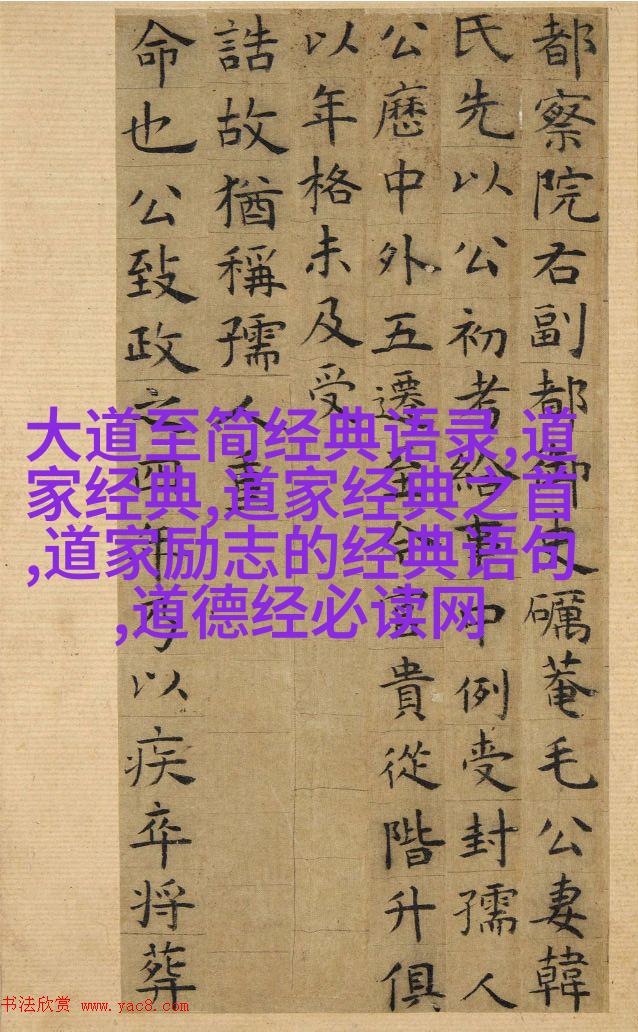 都察院右副都御史礪菴毛公妻韓
氏先以公初考給事中例受封孺人
公歷中外五遷至今官貴從階升俱
以年格未及受
誥故猶稱孺人重
命也公致政之四年以疾卒将葬
大道至简经典语录,道
家经典,道家经典之首
,道家励志的经典语句
,道德经必读网
书法欣赏 www.yac8.com